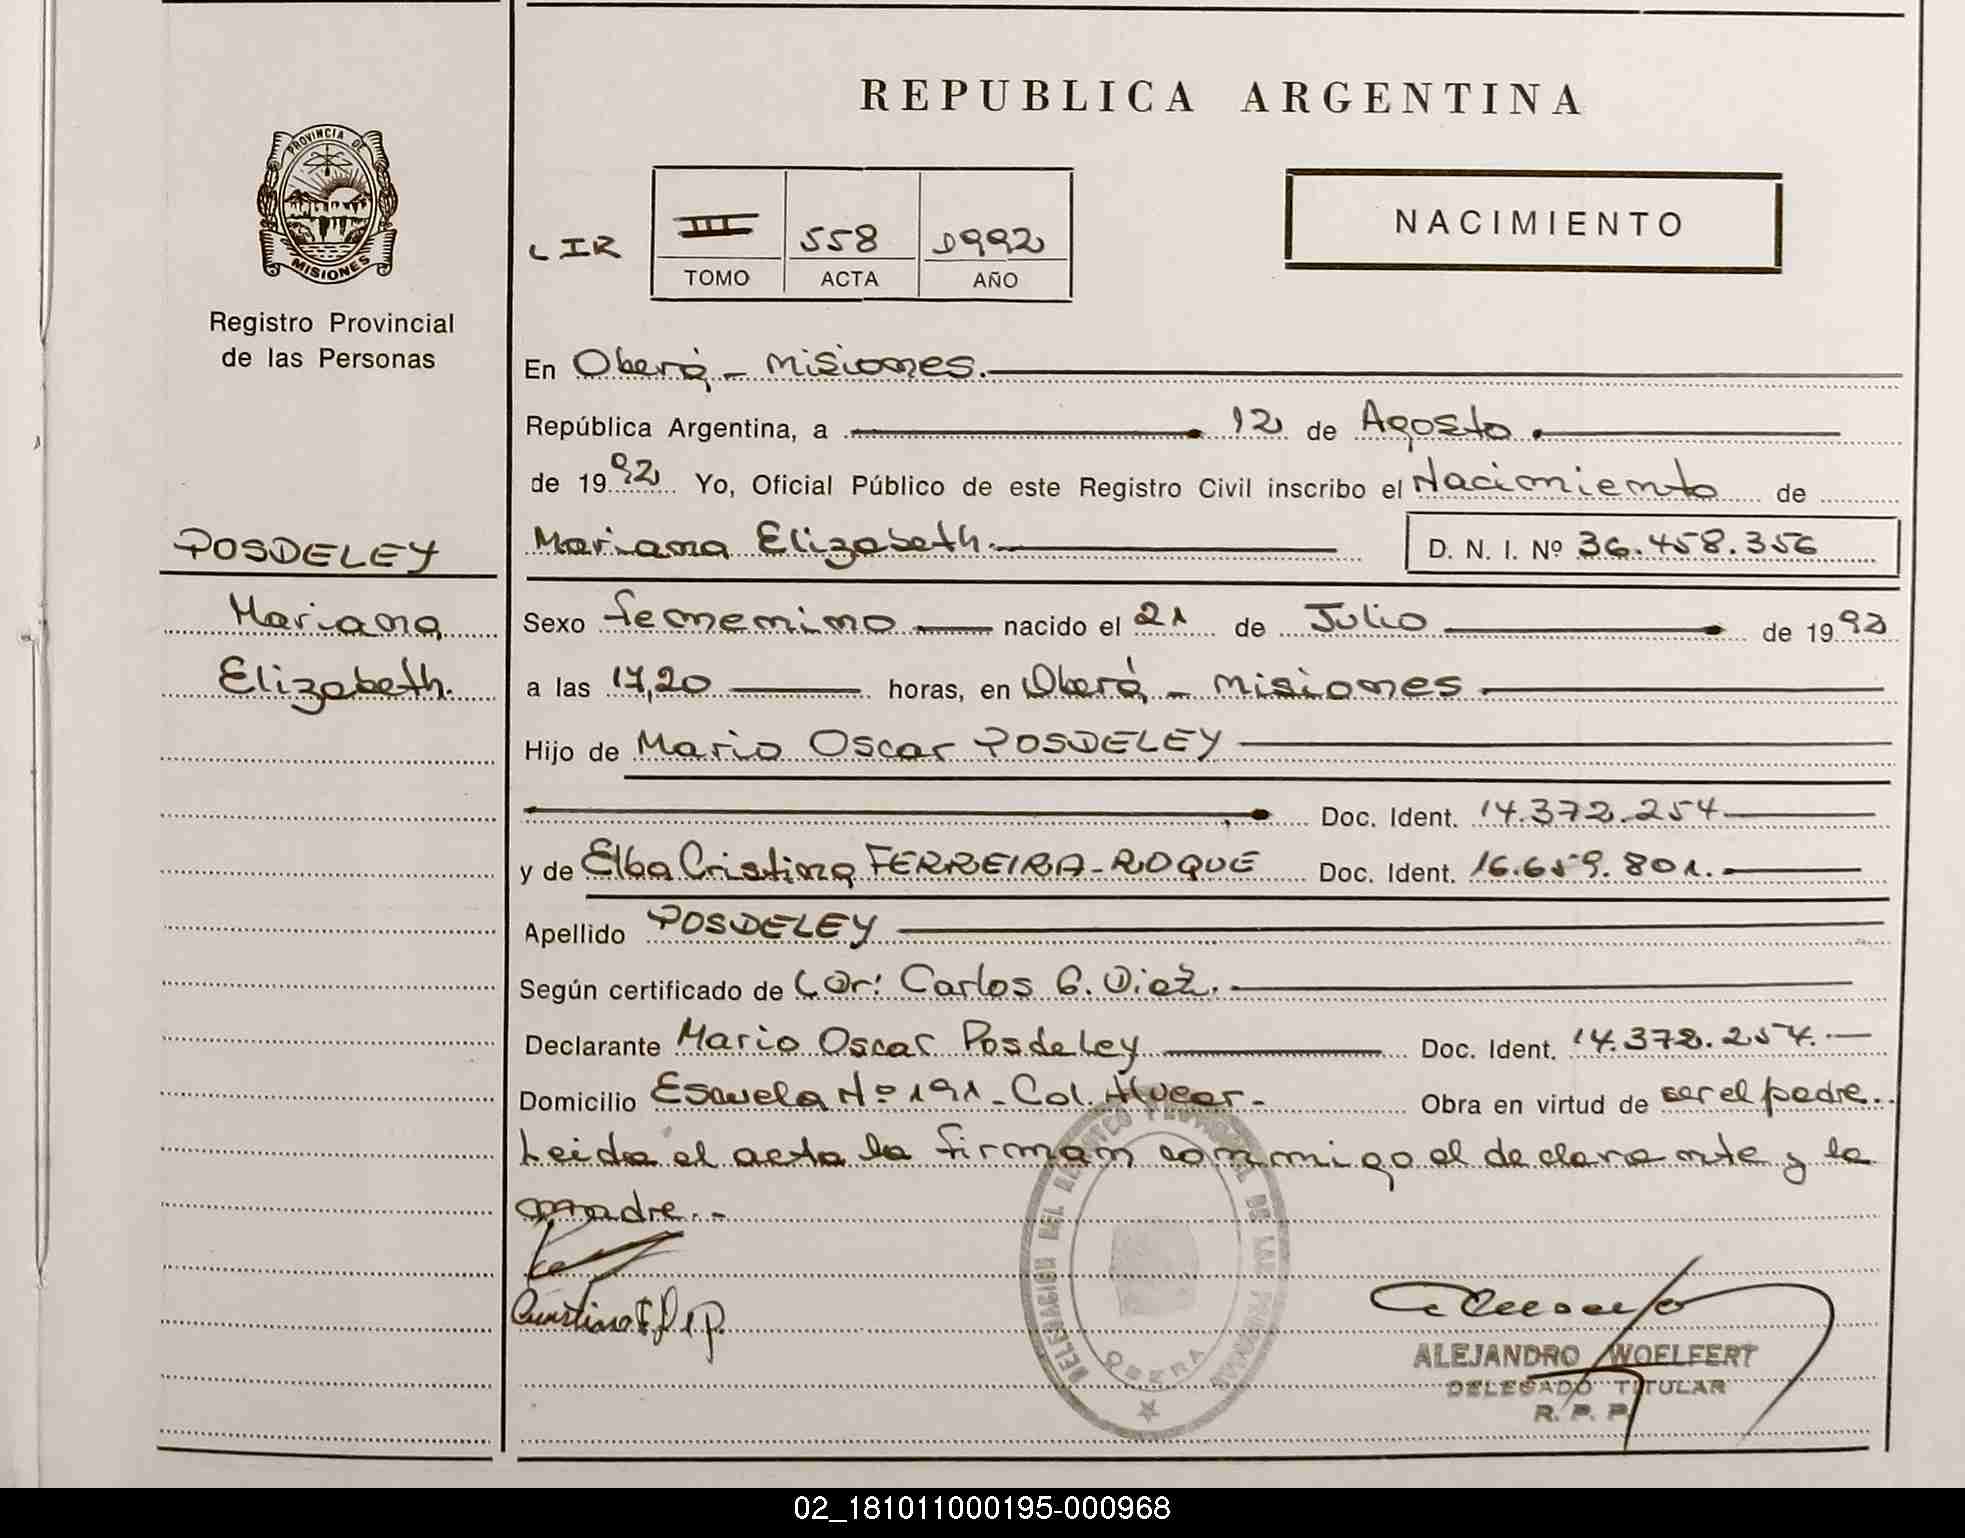 REPUBLICA ARGENTINA
PROVINCIA DE
MISIONES
Registro Provincial
de las Personas
LIR
III 558 1992
TOMO ACTA AÑO
NACIMIENTO
En Oberá - Misiones.
República Argentina, a 12 de Agosto
de 1992 Yo, Oficial Público de este Registro Civil inscribo el Nacimiento de
POSDELEY
Mariana Elizabeth. D. N. I. Nº 36.458.356
Mariana
Sexo femenino nacido el 21 de Julio de 1992
Elizabeth.
a las 17,20 horas, en Oberá - Misiones
Hijo de Mario Oscar POSDELEY
Doc. Ident. 14.372.254
y de Elba Cristina FERREIRA-ROQUE Doc. Ident. 16.659.801.
Apellido POSDELEY
Según certificado de Dr: Carlos G. Diez.
Declarante Mario Oscar Posdeley Doc. Ident. 14.372.254.
Domicilio Escuela Nº 191 - Col. Alvear - Obra en virtud de ser el padre..
Leida el acta la firman conmigo el declarante y la
madre. -
DELEGACION DEL REGISTRO PROVINCIAL DE LAS PERSONAS
OBERA
ALEJANDRO WOELFERT
DELEGADO TITULAR
R. P. P.
02_181011000195-000968